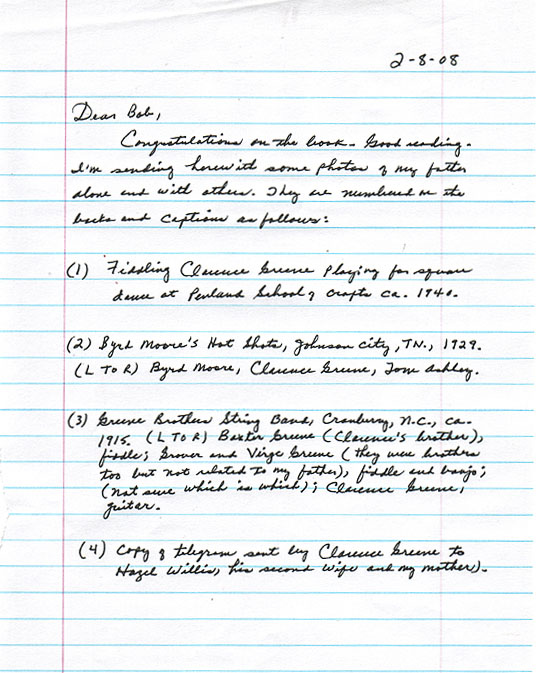 2-8-08
Dear Bob,
Congratulations on the book. Good reading.
I'm sending herewith some photos of my father
alone and with others. They are numbered on the
backs and captions as follows:
(1) Fiddling Clarence Greene playing for square
dance at Penland School of Crafts ca. 1940.
(2) Byrd Moore's Hot Shots, Johnson City, TN., 1929.
(L TO R) Byrd Moore, Clarence Greene, Tom Ashley.
(3) Greene Brothers String Band, Cranberry, N.C., ca.
1915. (L TO R) Baxter Greene (Clarence's brother),
fiddle; Grover and Virge Greene (they were brothers
too but not related to my father), fiddle and banjo;
(not sure which is which); Clarence Greene,
guitar.
(4) Copy of telegram sent by Clarence Greene to
Hazel Willis, his second wife and my mother).